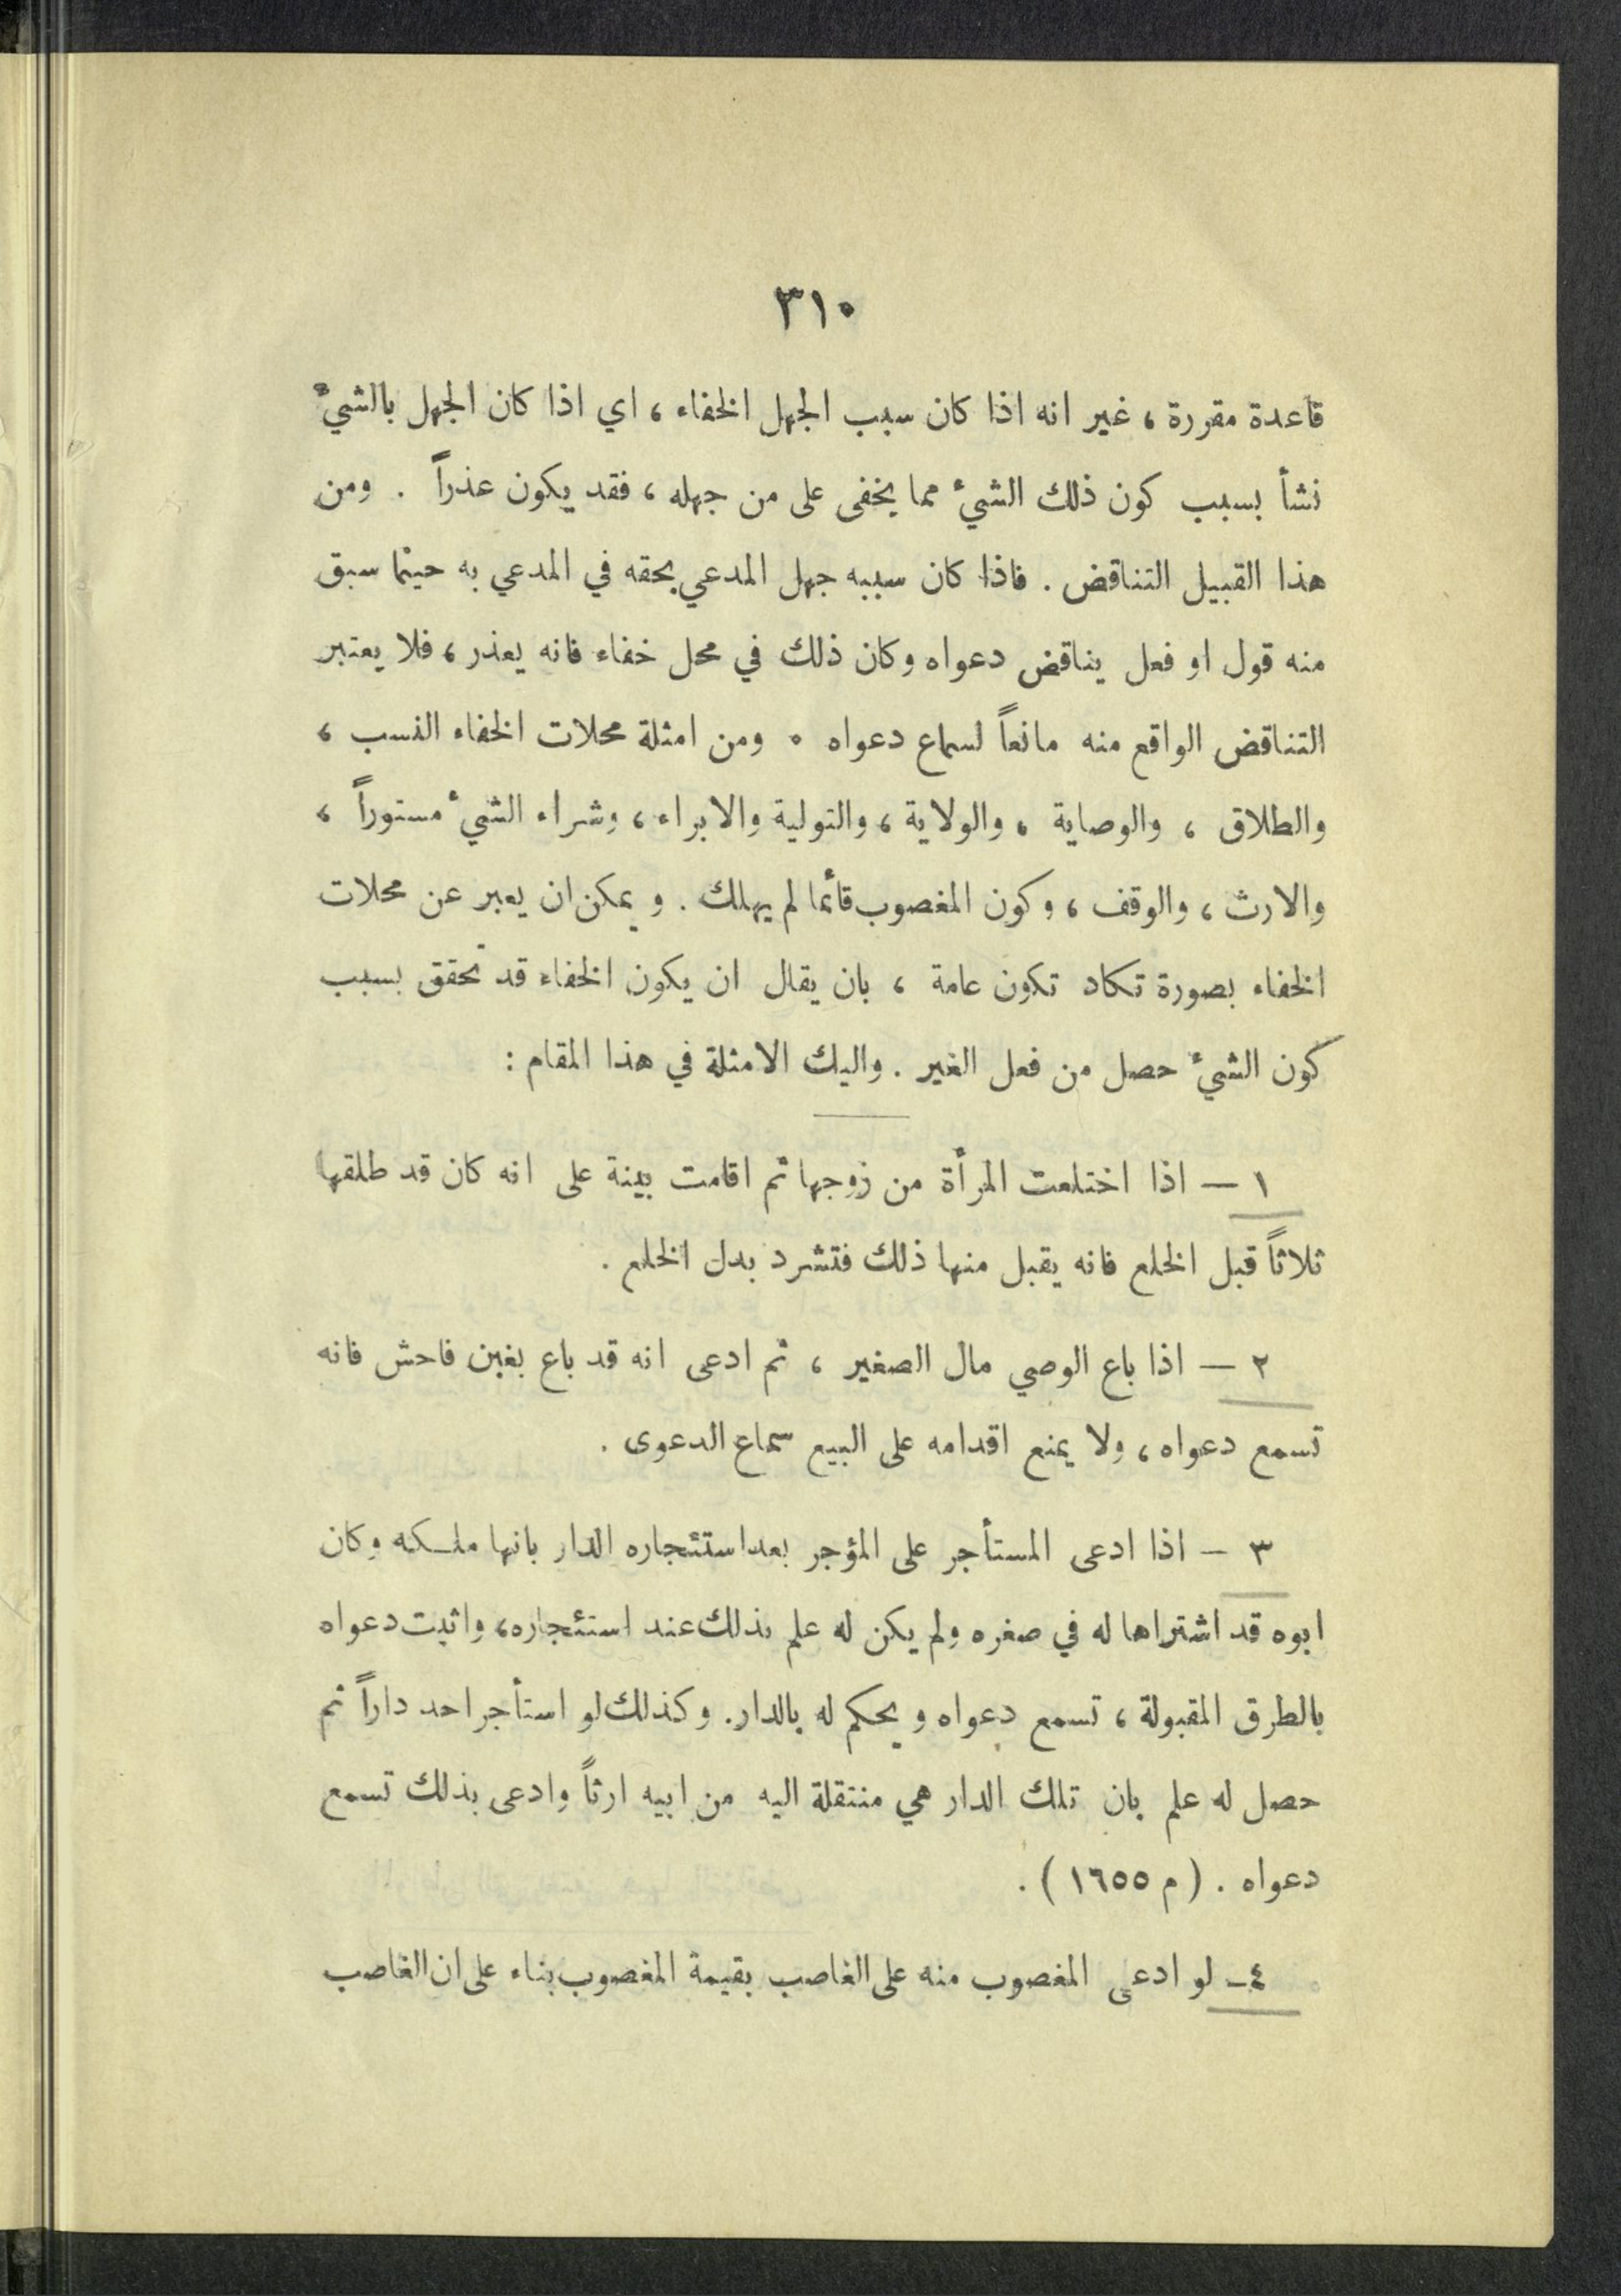 ٣١٠
قاعدة مقررة ، غير انه اذا كان سبب الجهل الخفاء ، اي اذا كان الجهل بالشيءٔ
نشأ بسبب كون ذلك الشيءٔ مما يخفى على من جهله ، فقد يكون عذراً . ومن
هذا القبيل التناقض . فاذا كان سببه جهل المدعي بحقه في المدعي به حينما سبق
منه قول او فعل يناقض دعواه وكان ذلك في محل خفاء فانه يعذر ، فلا يعتبر
التناقض الواقع منه مانعاً لسماع دعواه . ومن امثلة محلات الخفاء النسب ،
والطلاق ، والوصاية ، والولاية ، والتولية والابراء ، وشراء الشيءٔ مستوراً ،
والارث ، والوقف ، وكون المغصوب قائما لم يهلك . ويمكن ان يعبر عن محلات
الخفاء بصورة تكاد تكون عامة ، بان يقال ان يكون الخفاء قد تحقق بسبب
كون الشيءٔ حصل من فعل الغير . واليك الامثلة في هذا المقام :
١ — اذا اختلعت المرأة من زوجها ثم اقامت بينة على انه كان قد طلقها
ثلاثاً قبل الخلع فانه يقبل منها ذلك فتشرد بدل الخلع .
٢ — اذا باع الوصي مال الصغير ، ثم ادعى انه قد باع بغبن فاحش فانه
تسمع دعواه ، ولا يمنع اقدامه على البيع سماع الدعوى .
٣ — اذا ادعى المستأجر على المؤجر بعد استئجاره الدار بانها ملكه وكان
ابوه قد اشتراها له في صغره ولم يكن له علم بذلك عند استئجاره ، واثبت دعواه
بالطرق المقبولة ، تسمع دعواه ويحكم له بالدار . وكذلك لو استأجر احد داراً ثم
حصل له علم بان تلك الدار هي منتقلة اليه من ابيه ارثاً وادعى بذلك تسمع
دعواه . ( م ١٦٥٥ ) .
٤ — لو ادعى المغصوب منه على الغاصب بقيمة المغصوب بناء على ان الغاصب